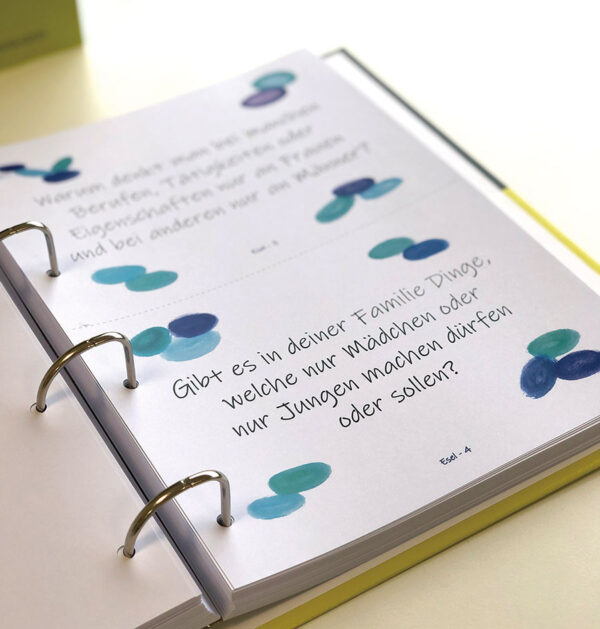 Warum denkt man bei manchen
Berufen, Tätigkeiten oder
Eigenschaften nur an Frauen
und bei anderen nur an Männer?
Esel - 3
Gibt es in deiner Familie Dinge,
welche nur Mädchen oder
nur Jungen machen dürfen
oder sollen?
Esel - 4